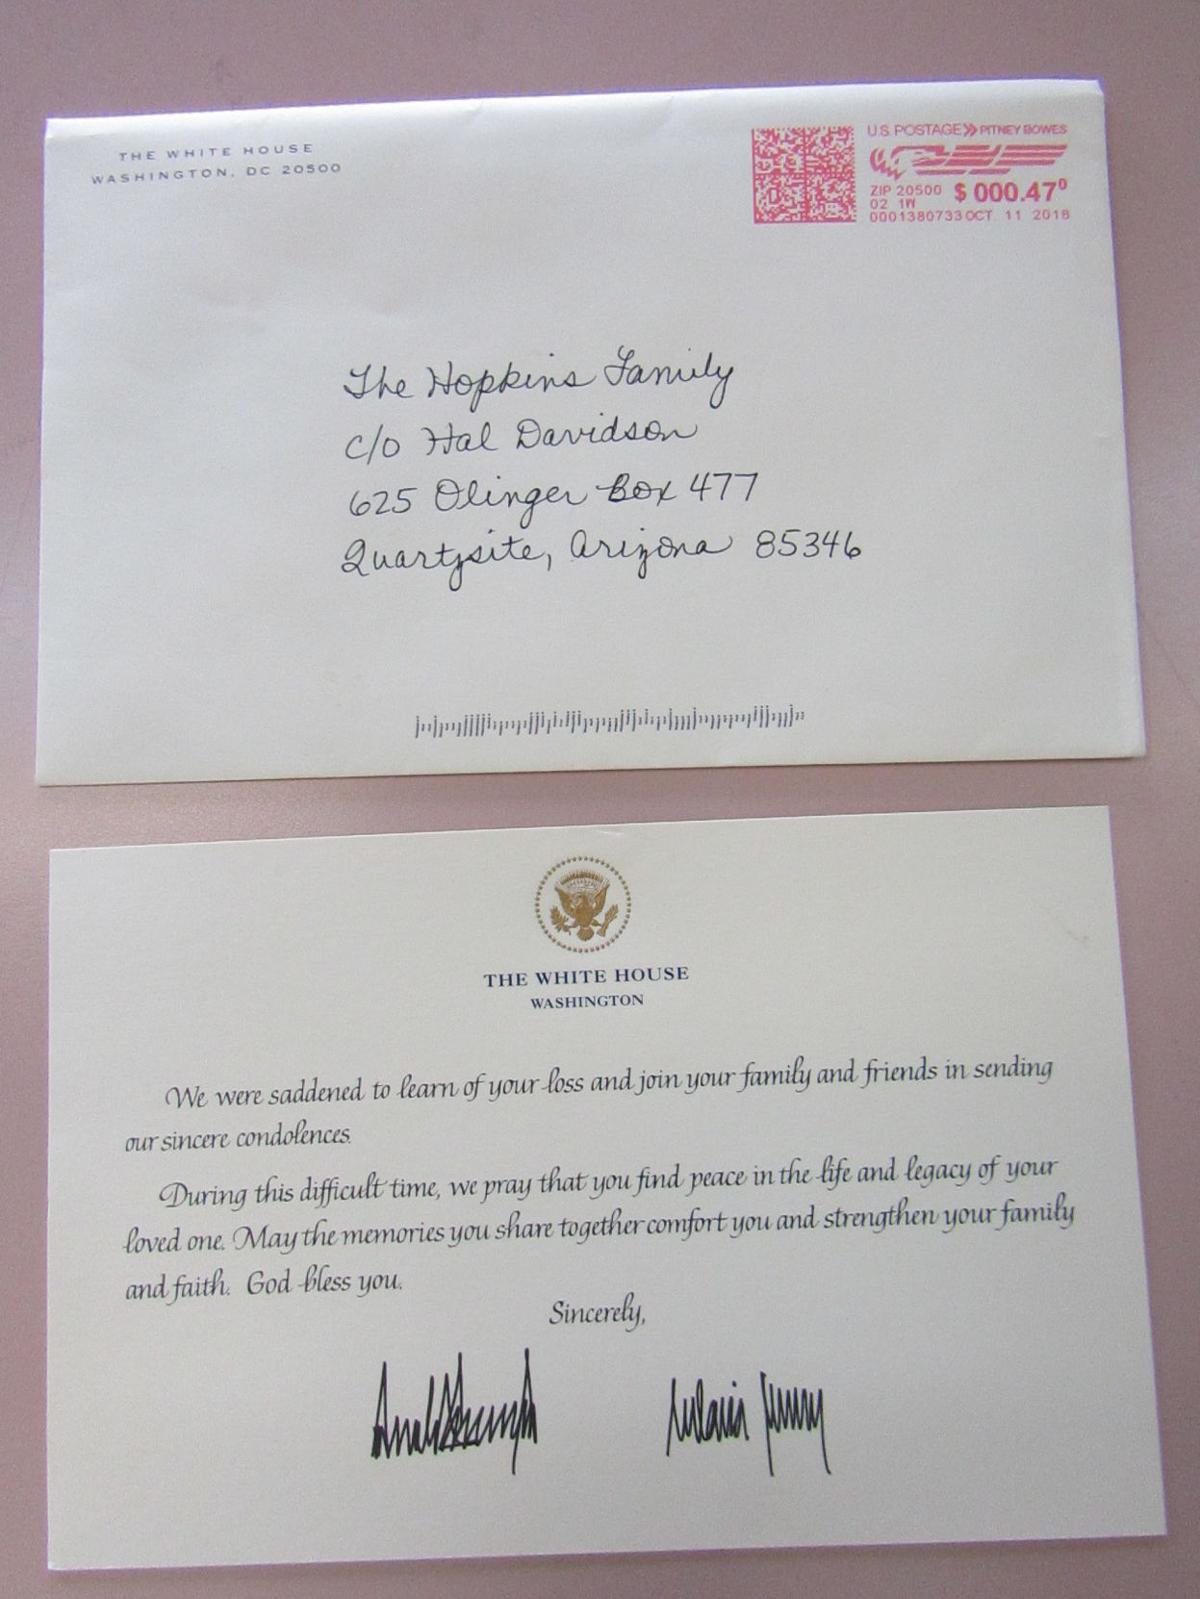 THE WHITE HOUSE
WASHINGTON, DC 20500
U.S. POSTAGE PITNEY BOWES
ZIP 20500 $ 000.47⁰
02 1W
0001380733 OCT. 11 2018
The Hopkins Family
c/o Hal Davidson
625 Olinger Box 477
Quartzsite, Arizona 85346
THE WHITE HOUSE
WASHINGTON
We were saddened to learn of your loss and join your family and friends in sending
our sincere condolences.
During this difficult time, we pray that you find peace in the life and legacy of your
loved one. May the memories you share together comfort you and strengthen your family
and faith. God bless you.
Sincerely,
Donald Trump Melania Trump